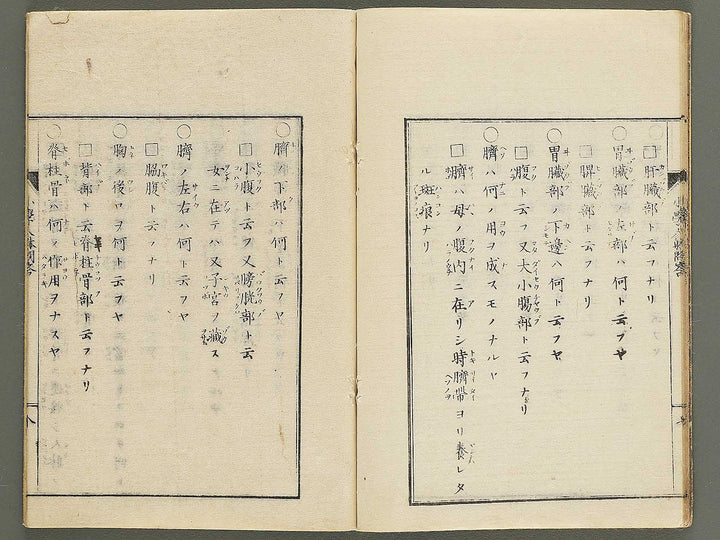 □肝臓部ト云フナリ
○胃臓部ノ左部ハ何ト云フヤ
□脾臓部ト云フナリ
○胃臓部ノ下邉ハ何ト云フヤ
□腹ト云フ又大小腸部ト云フナリ
○臍ハ何ノ用ヲ成スモノナルヤ
□臍ハ母ノ腹内ニ在リシ時臍帶ヨリ養レタ
ル斑痕ナリ
○臍ノ下部ハ何ト云フヤ
□小腹ト云フ又膀胱部ト云
女ニ在テハ又子宮ヲ藏ス
○臍ノ左右ハ何ト云フヤ
□脇腹ト云フナリ
○胸ノ後ロヲ何ト云フヤ
□背部ト云脊柱骨部ト云フナリ
○脊柱骨ハ何ノ作用ヲナスヤ